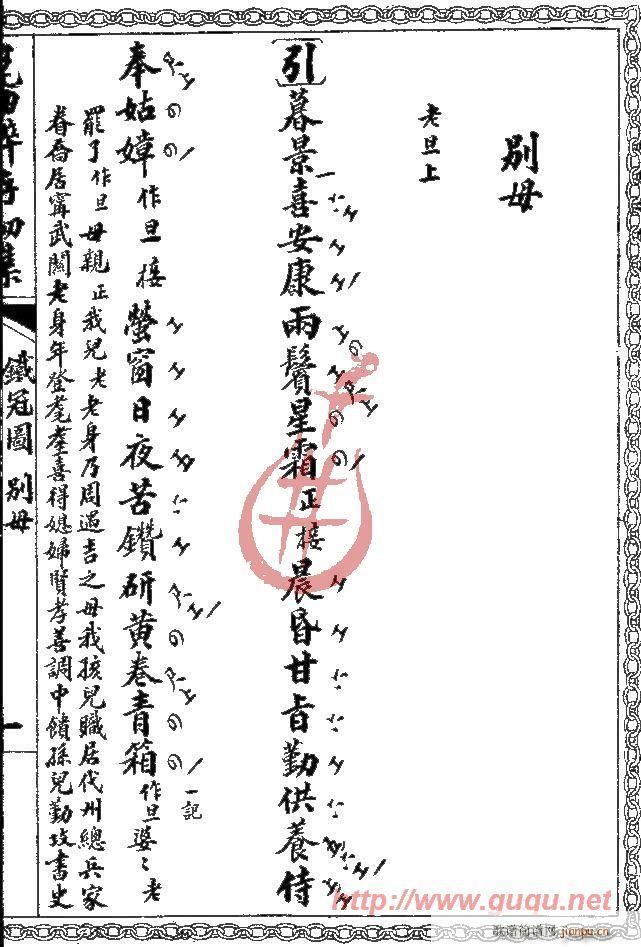 別母
老旦上
〔引〕暮景喜安康兩鬢星霜正接晨昏甘旨勤供養侍
奉姑嫜作旦接螢窗日夜苦鑽研黃卷青箱作旦婆〻老
一記
罷了作旦母親正我兒老老身乃周遇吉之母我孩兒職居代州總兵家
眷喬居甯武關老身年登耄耋喜得媳婦賢孝善調中饋孫兒勤攻書史
鐵冠圖 別母
一
http://www.guqu.net
歌谱简谱网
jianpu.cn